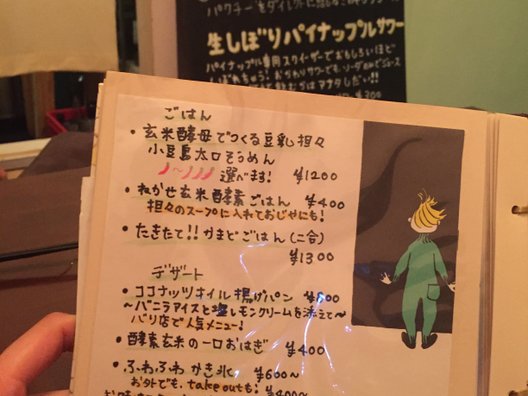 パクチーをダイレクトに
生しぼりパイナップルサワー
パイナップル専用スクイーザーでおもしろいほど
ごはん
・玄米酵母でつくる豆乳担々
小豆島太口そうめん
選べます! ¥1200
・ねかせ玄米酵素ごはん ¥400
担々のスープに入れておじゃにも!
・たきたて!!かまどごはん(二合)
¥1300
デザート
・ココナッツオイル揚げパン ¥600
〜バニラアイスと塩レモンクリームを添えて〜
バリ店で人気メニュー!
・酵素玄米の一口おはぎ ¥400
・ふわふわかき氷 ¥600〜
お外でも、take outも! ¥400〜